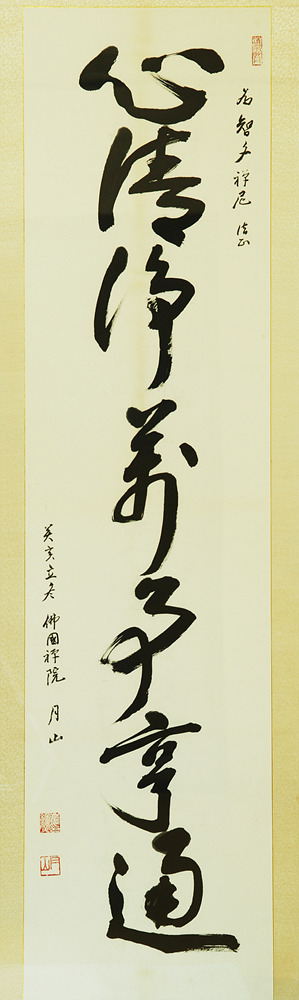 為智多禅尼 法正
心清净萬事亨通
癸亥立冬 佛國禅院 月山